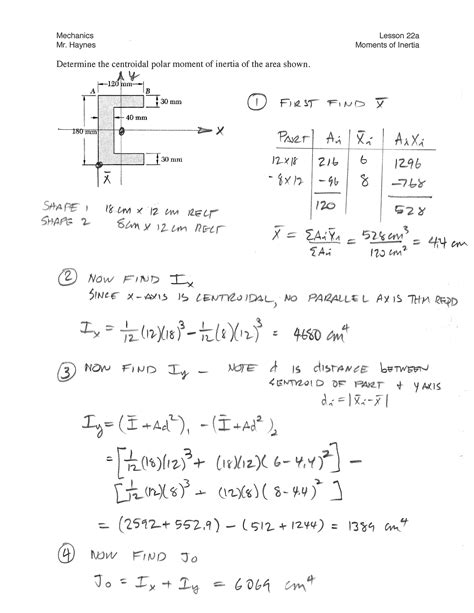 Mechanics
Mr. Haynes
Lesson 22a
Moments of Inertia
Determine the centroidal polar moment of inertia of the area shown.
y
120 mm
A B
30 mm
40 mm
180 mm
x
30 mm
X̄
SHAPE 1 18 cm x 12 cm RECT
SHAPE 2 8cm x 12 cm RECT
① FIRST FIND X̄
PART Ai X̄i AiXi
12x18 216 6 1296
-8x12 -96 8 -768
120 528
X̄ = ΣAiX̄i / ΣAi = 528 cm³ / 120 cm² = 4.4 cm
② NOW FIND Ix
SINCE X-AXIS IS CENTROIDAL, NO PARALLEL AXIS THM REQD
Ix = 1/12 (12)(18)³ - 1/12 (8)(12)³ = 4680 cm⁴
③ NOW FIND Iy - NOTE d IS DISTANCE BETWEEN
CENTROID OF PART & Y AXIS
di = |X̄i - X̄|
Iy = (Ī + Ad²)₁ - (Ī + Ad²)₂
= [1/12 (18)(12)³ + (18)(12)(6-4.4)²] -
[1/12 (12)(8)³ + (12)(8)(8-4.4)²]
= (2592 + 552.9) - (512 + 1244) = 1389 cm⁴
④ NOW FIND Jo
Jo = Ix + Iy = 6069 cm⁴